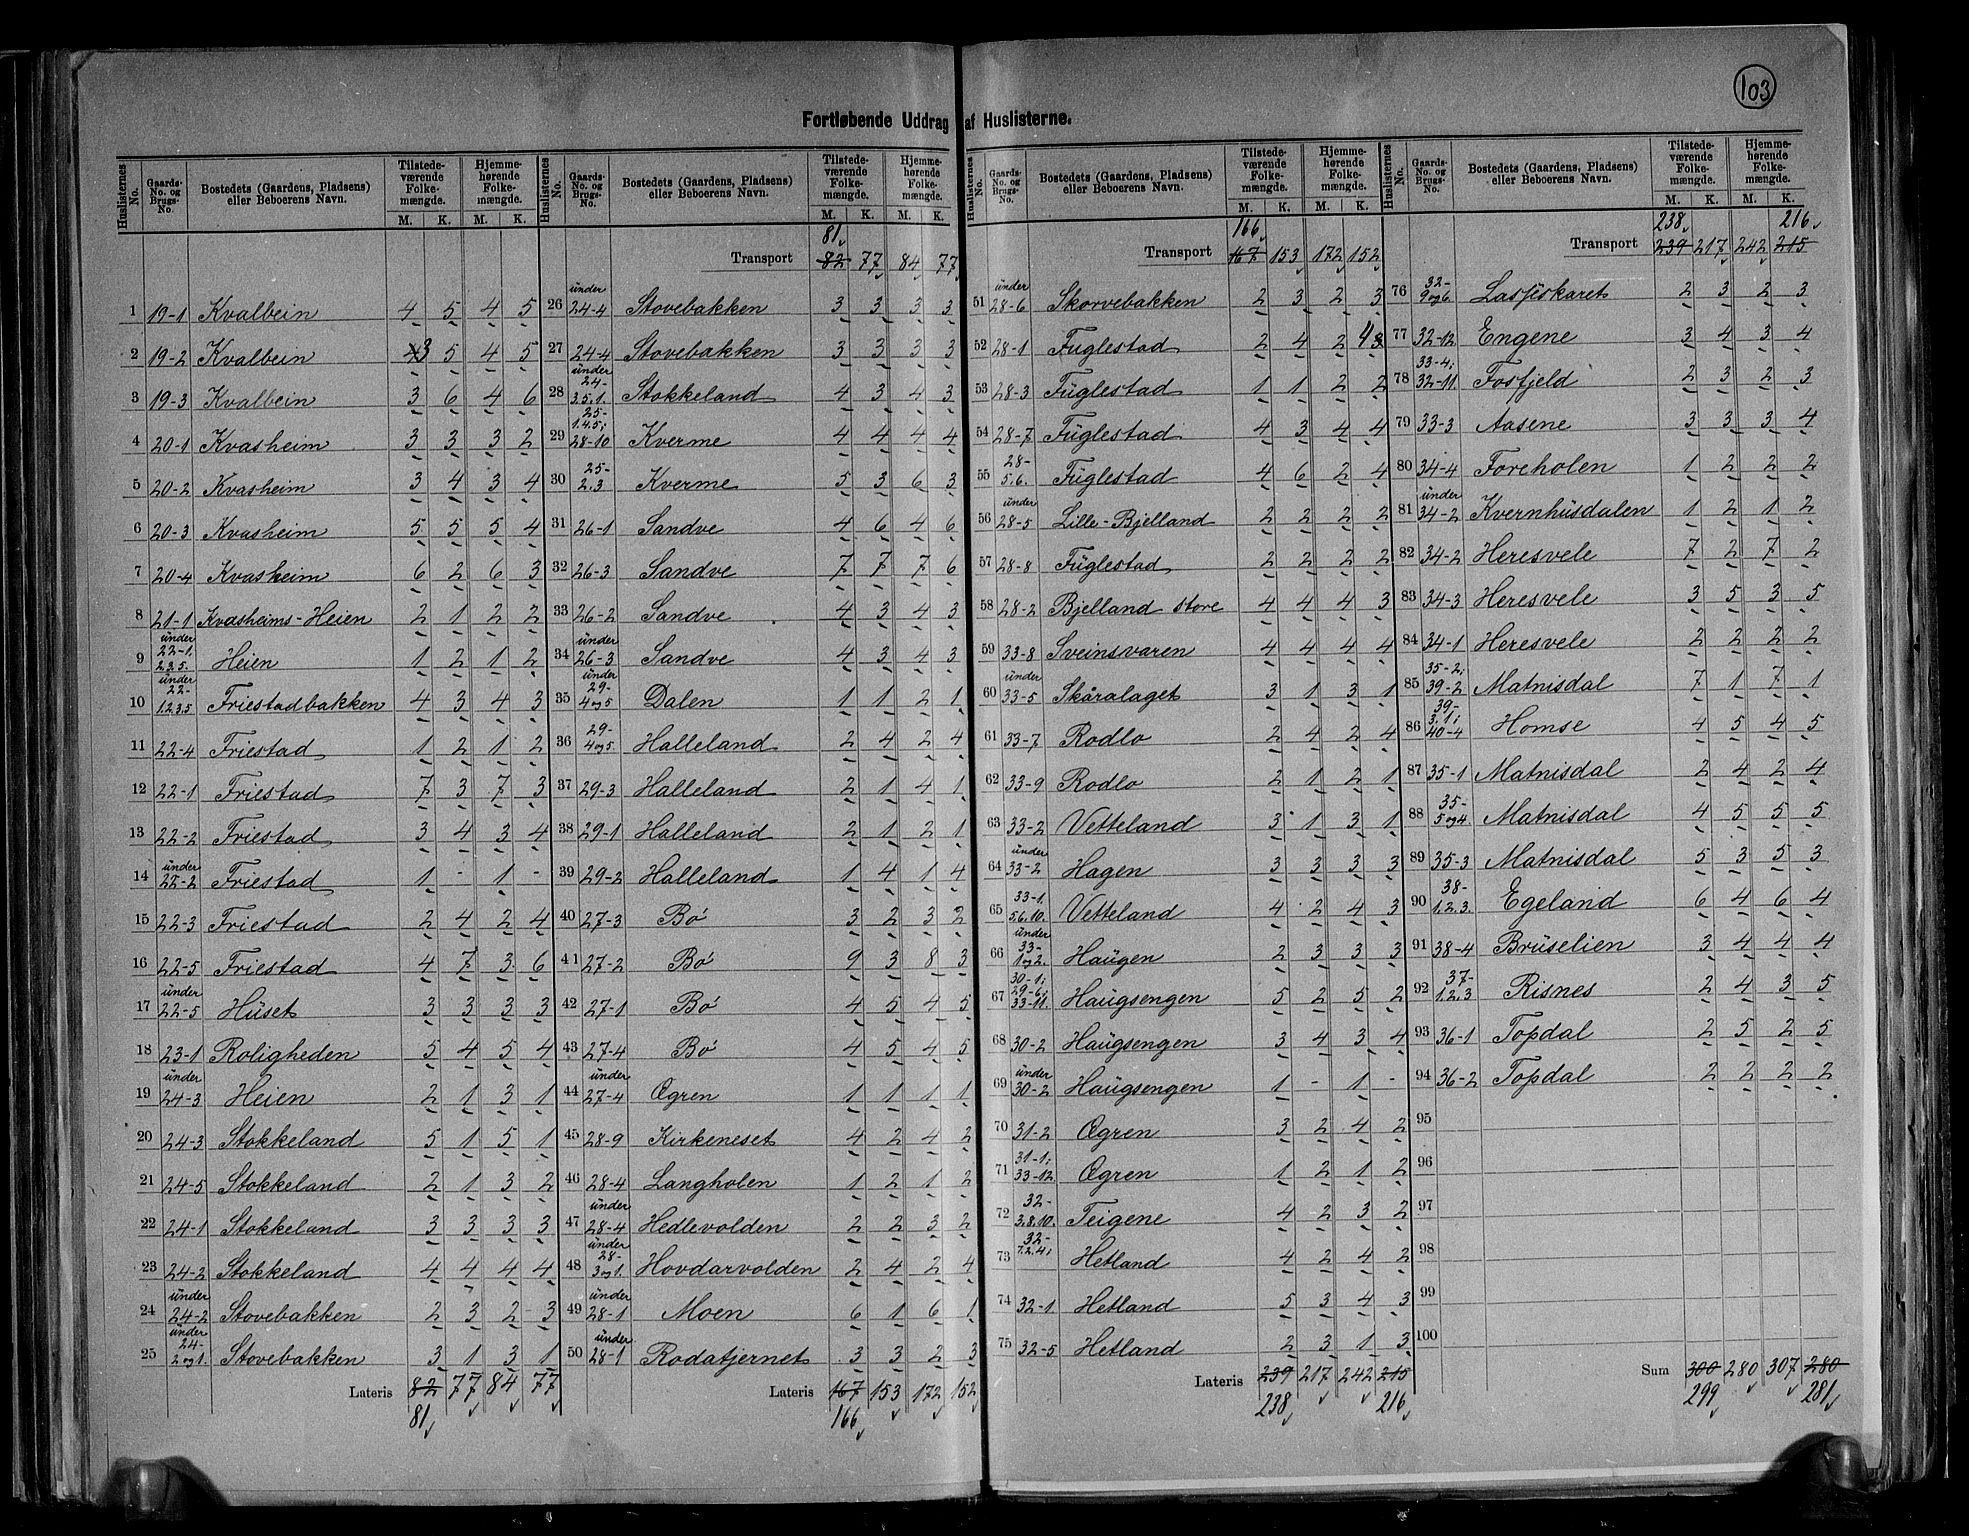 103
Fortløbende Uddrag af Huslisterne.
Huslisternes No. Gaards-No. og Brugs-No. Bostedets (Gaardens, Pladsens) eller Beboerens Navn. Tilstedeværende Folkemængde. M. K. Hjemmehørende Folkemængde. M. K.
1 19-1 Kvalbein 4 5 4 5
2 19-2 Kvalbein 3 5 4 5
3 19-3 Kvalbein 3 6 4 6
4 20-1 Kvasheim 3 3 3 2
5 20-2 Kvasheim 3 4 3 4
6 20-3 Kvasheim 5 5 5 4
7 20-4 Kvasheim 6 2 6 3
8 21-1 Kvasheims-Heien 2 1 2 2
9 under 22-1. 2.3.5. Heien 1 2 1 2
10 under 22- 1.2.3.5 Friestadbakken 4 3 4 3
11 22-4 Friestad 1 2 1 2
12 22-1 Friestad 7 3 7 3
13 22-2 Friestad 3 4 3 4
14 under 22-2 Friestad 1 - 1 -
15 22-3 Friestad 2 4 2 4
16 22-5 Friestad 4 7 3 6
17 under 22-5 Huset 3 3 3 3
18 23-1 Roligheden 5 4 5 4
19 under 24-3 Heien 2 1 3 1
20 24-3 Stokkeland 5 1 5 1
21 24-5 Stokkeland 2 1 3 2
22 24-1 Stokkeland 3 3 3 3
23 24-2 Stokkeland 4 4 4 4
24 under 24-2 Stovebakken 2 3 2 3
25 under 24- 2 og 1. Stovebakken 3 1 3 1
Lateris 82 77 84 77
81
Huslisternes No. Gaards-No. og Brugs-No. Bostedets (Gaardens, Pladsens) eller Beboerens Navn. Tilstedeværende Folkemængde. M. K. Hjemmehørende Folkemængde. M. K.
81
Transport 82 77 84 77
26 under 24-4 Stovebakken 3 3 3 3
27 24-4 Stovebakken 3 3 3 3
28 under 24- 3.5.1. Stokkeland 4 3 4 3
29 25- 1.4.5; 28-10 Kverme 4 4 4 4
30 25- 2.3 Kverme 5 3 6 3
31 26-1 Sandve 4 6 4 6
32 26-3 Sandve 7 7 7 6
33 26-2 Sandve 4 3 4 3
34 under 26-3 Sandve 4 3 4 3
35 under 29- 4 og 5 Dalen 1 1 2 1
36 29- 4 og 5. Halleland 2 4 2 4
37 29-3 Halleland 2 1 4 1
38 29-1 Halleland 2 1 2 1
39 29-2 Halleland 1 4 1 4
40 27-3 Bø 3 2 3 2
41 27-2 Bø 9 3 8 3
42 27-1 Bø 4 5 4 5
43 27-4 Bø 4 5 4 5
44 under 27-4 Øgren 1 1 1 1
45 28-9 Kirkeneset 4 2 4 2
46 28-4 Langholen 1 2 1 2
47 under 28-4 Hedlevolden 2 2 3 2
48 under 28- 3 og 1. Hovdarvolden 2 4 2 4
49 under 28-1 Moen 6 1 6 1
50 under 28-1 Rodatjernet 3 3 2 3
Lateris 167 153 172 152
166
Huslisternes No. Gaards-No. og Brugs-No. Bostedets (Gaardens, Pladsens) eller Beboerens Navn. Tilstedeværende Folkemængde. M. K. Hjemmehørende Folkemængde. M. K.
166
Transport 167 153 172 152
51 under 28-6 Skorvebakken 2 3 2 3
52 28-1 Fuglestad 2 4 2 4 3
53 28-3 Fuglestad 1 1 2 2
54 28-7 Fuglestad 4 3 4 4
55 28- 5.6. Fuglestad 4 6 2 4
56 under 28-5 Lille-Bjelland 2 2 2 2
57 28-8 Fuglestad 2 2 2 2
58 28-2 Bjelland store 4 4 4 3
59 33-8 Sveinsvaren 4 4 4 4
60 under 33-5 Skåralaget 3 1 3 1
61 33-7 Rodlo 2 4 2 4
62 33-9 Rodlo 2 1 2 1
63 33-2 Vetteland 3 1 3 1
64 under 33-2 Hagen 3 3 3 3
65 33-1. 5.6.10. Vetteland 4 2 4 3
66 under 33- 1 og 2. Haugen 2 3 3 3
67 30-1; 29-6; 33-11. Haugsengen 5 2 5 2
68 30-2 Haugsengen 3 4 3 4
69 under 30-2 Haugsengen 1 - 1 -
70 31-2 Øgren 3 2 4 2
71 31-1; 33-12 Øgren 1 2 1 2
72 32- 3.8.10. Teigene 4 2 3 2
73 32- 7.2.4; Hetland 4 2 4 2
74 32-1 Hetland 5 3 4 3
75 32-5 Hetland 2 3 1 3
Lateris 239 217 242 215
238 216
Huslisternes No. Gaards-No. og Brugs-No. Bostedets (Gaardens, Pladsens) eller Beboerens Navn. Tilstedeværende Folkemængde. M. K. Hjemmehørende Folkemængde. M. K.
238 216
Transport 239 217 242 215
76 32- 9 og 6. Lasfiskaret 2 3 2 3
77 32-12 Engene 3 4 3 4
78 33-4; 32-11. Fosfjeld 2 3 2 3
79 33-3 Aasene 3 3 3 4
80 34-4 Foreholen 1 2 2 2
81 under 34-2 Kvernhusdalen 1 2 1 2
82 34-2 Heresvele 7 2 7 2
83 34-3 Heresvele 3 5 3 5
84 34-1 Heresvele 2 2 2 2
85 35-2; 39-2 Matnisdal 7 1 7 1
86 39- 3.1; 40-4 Homse 4 5 4 5
87 35-1 Matnisdal 2 4 2 4
88 35- 5 og 4 Matnisdal 4 5 5 5
89 35-3 Matnisdal 5 3 5 3
90 38- 1.2.3. Egeland 6 4 6 4
91 38-4 Bruselien 3 4 4 4
92 37- 1.2.3 Risnes 2 4 3 5
93 36-1 Topdal 2 5 2 5
94 36-2 Topdal 2 2 2 2
95
96
97
98
99
100
Sum 300 280 307 280
299 281